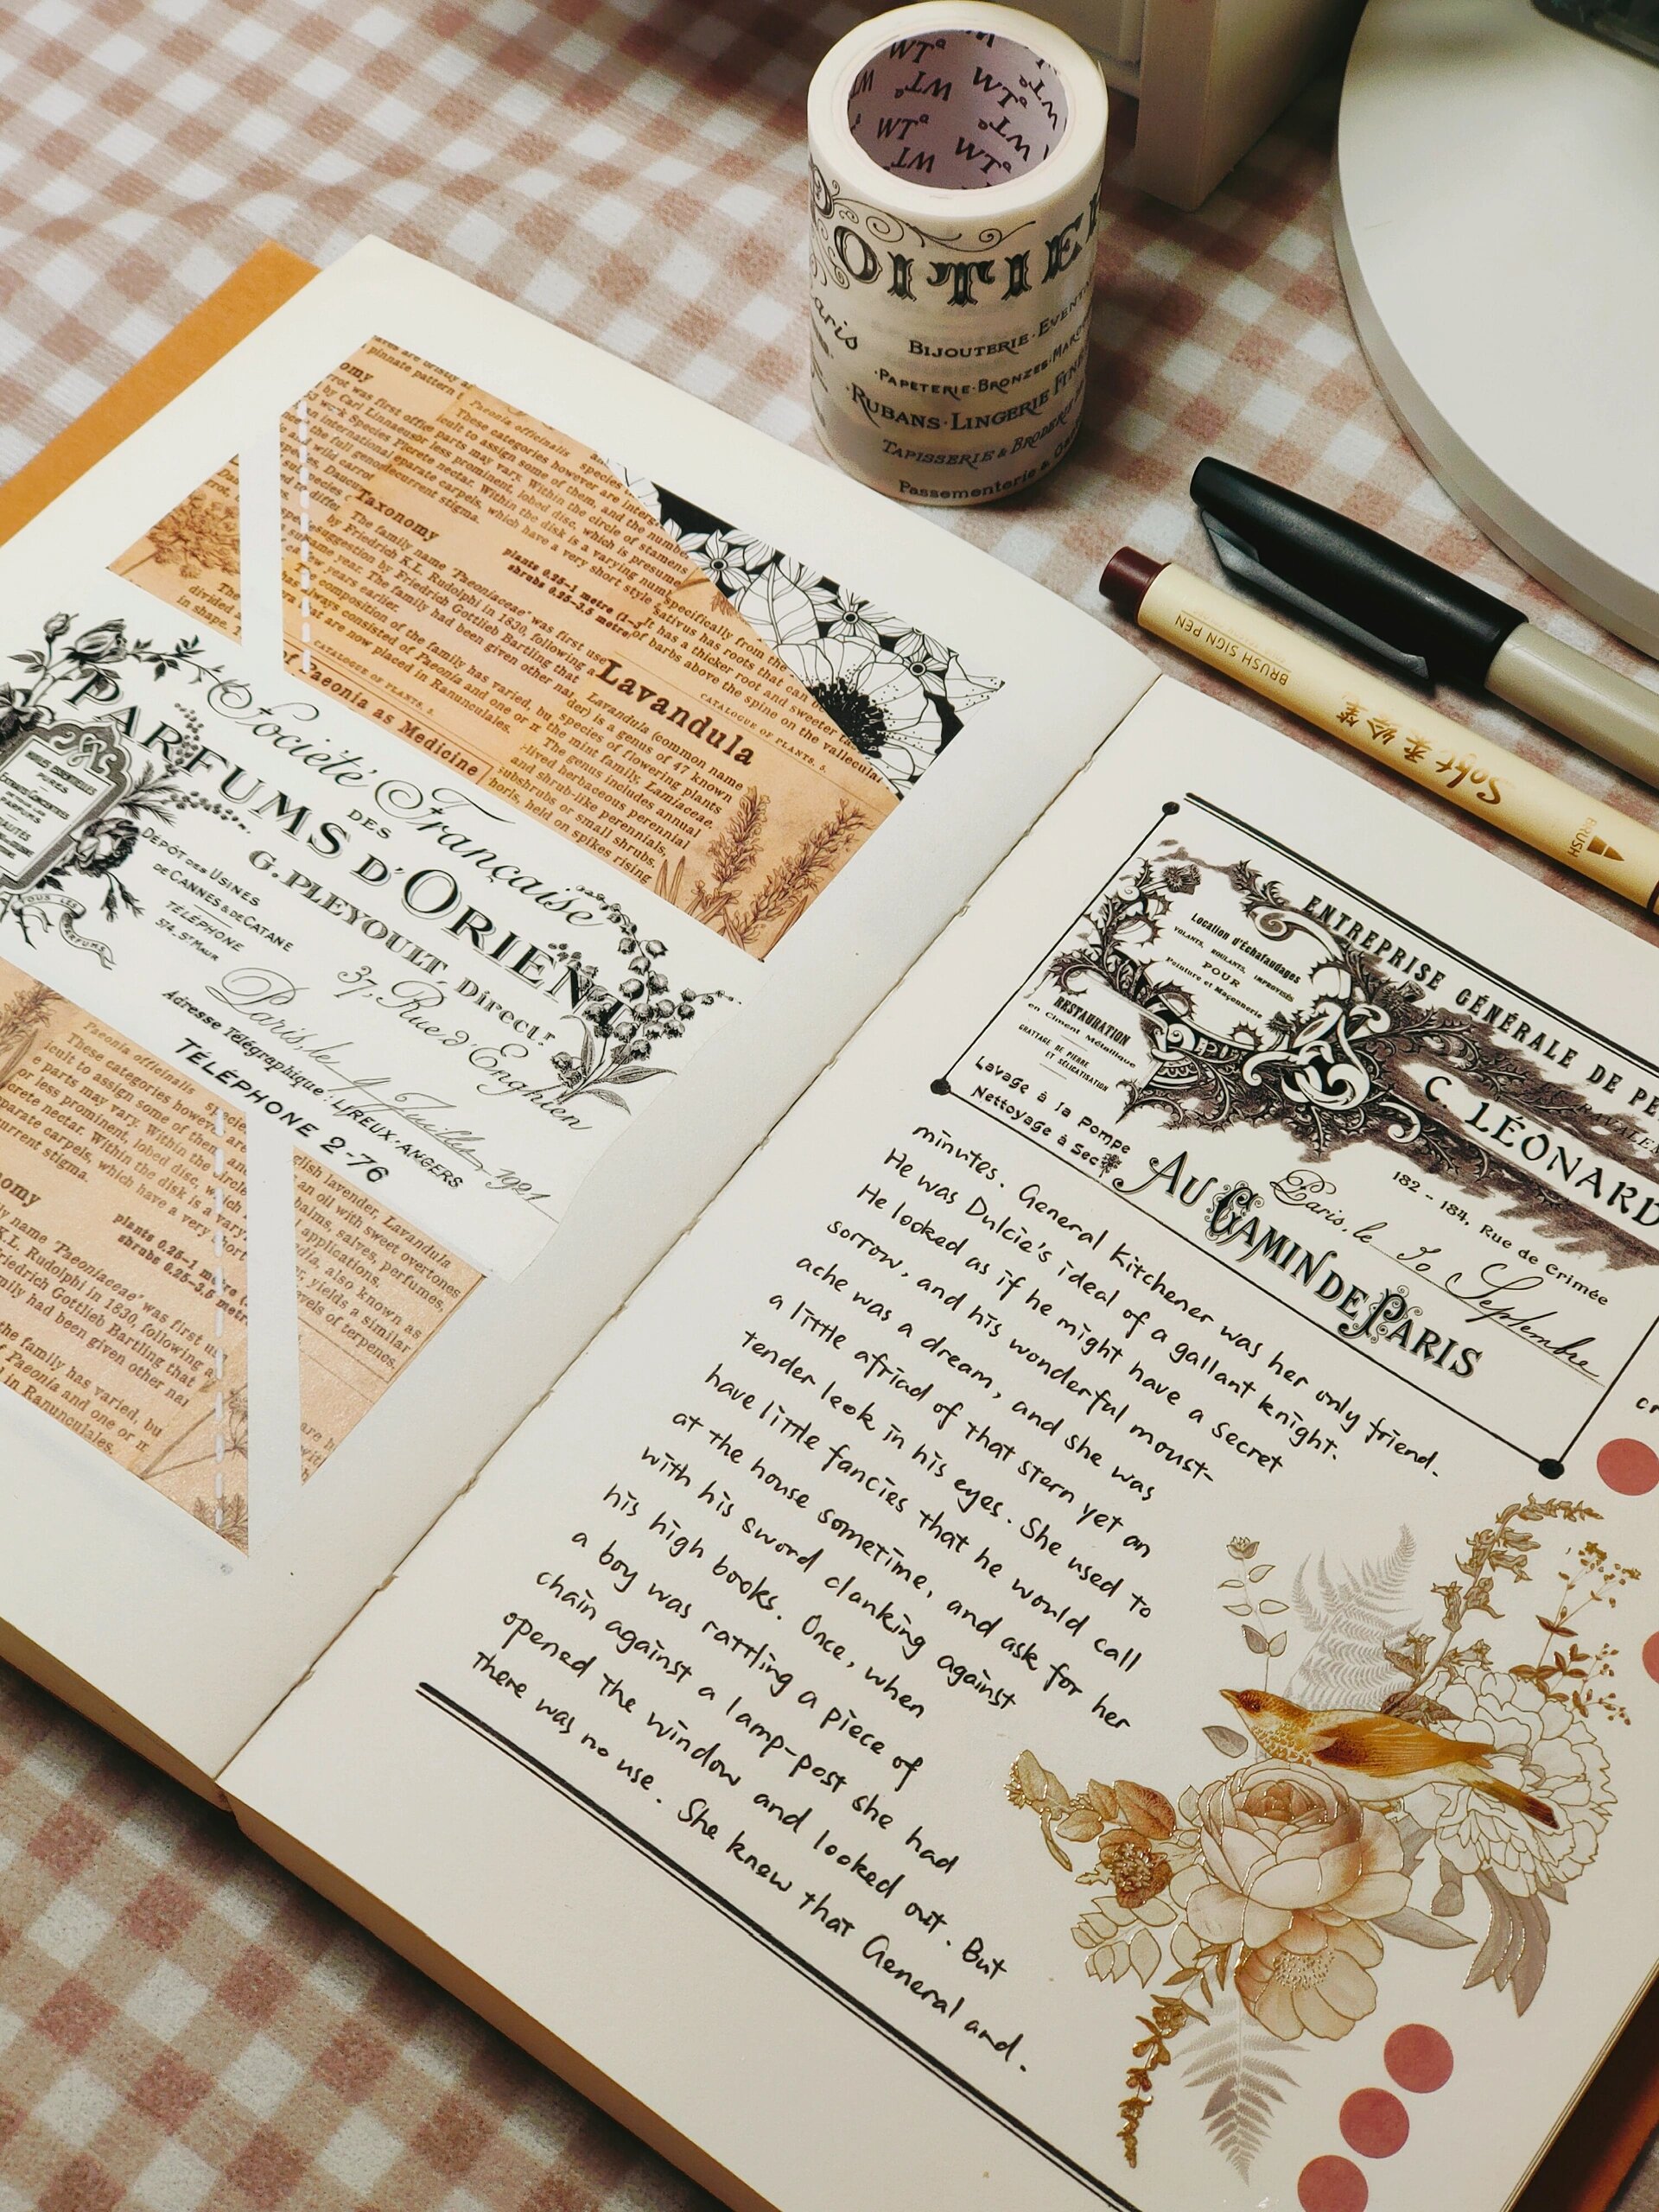 WTa WTa WTa WTa
OITIE
Paris
BIJOUTERIE · EVENTA
· PAPETERIE · BRONZES · MARO
· RUBANS · LINGERIE FINE
TAPISSERIE & BRODERIE
Passementerie &
BRUSH SIGN PEN
Soft 柔绘笔
BRUSH
pinnate pattern
omy
rrot was first offic
by Carl Linnaeus
Paeonia officinalis
These categories however are
icult to assign some of them, and the numb
parts may vary. Within the circle of stamens
or less prominent, lobed disc, which is presume
crete nectar. Within the disk is a varying numb
parate carpels, which have a very short style
current stigma.
Taxonomy
The family name 'Paeoniaceae' was first use
by Friedrich K.L. Rudolphi in 1830, following a
suggestion by Friedrich Gottlieb Bartling that
same year. The family had been given other nai
few years earlier.
composition of the family has varied, bu
always consisted of Paeonia and one or
that are now placed in Ranunculales.
plants 0.25–1 metre (1–3
shrubs 0.25–3.5 metre
CATALOGUE OF PLANTS. 5.
Paeonia as Medicine
specifically from the
It has a thicker root and sweeter
Sativus has roots that can
of barbs above the spine on the vallecular
CATALOGUE OF PLANTS. 5.
Lavandula
Lavandula (common name
der) is a genus of 47 known
species of flowering plants
the mint family, Lamiaceae.
The genus includes annual
-lived herbaceous perennial
and shrub-like perennials,
subshrubs or small shrubs.
horls, held on spikes rising
Société Française
DES
PARFUMS D'ORIENT
G. PLEYOULT, Directr.
DÉPÔT DES USINES
DE CANNES & DE CATANE
TÉLÉPHONE
574. ST MAUR
37, Rue d'Enghien
Paris, le 4 Juillet 1921
Adresse Télégraphique: LIREUX-ANGERS
TÉLÉPHONE 2-76
Paeonia officinalis
These categories however
icult to assign some of them
e parts may vary. Within the circle
or less prominent, lobed disc, which
crete nectar. Within the disk is a vary
parate carpels, which have a very short
current stigma.
plants 0.25–1 metre
shrubs 0.25–3.5 metre
ly name 'Paeoniaceae' was first use
K.L. Rudolphi in 1830, following
riedrich Gottlieb Bartling that
mily had been given other nai
the family has varied, bu
of Paeonia and one or
d in Ranunculales.
glish lavender, Lavandula
an oil with sweet overtones
balms, salves, perfumes,
applications.
dia, also known as
yields a similar
evels of terpenes.
ENTREPRISE GÉNÉRALE DE PE
C. LÉONARD
Location d'Échafaudages
VOLANTS, ROULANTS, IMPROVISÉS
POUR
Peinture et Maçonnerie
RESTAURATION
en Ciment Métallique
GRATTAGE DE PIERRE
ET SÉLICATISATION
Lavage à la Pompe
Nettoyage à Sec
182 - 184, Rue de Crimée
Paris, le 30 Septembre
AU GAMIN DE PARIS
minutes. General Kitchener was her only friend.
He was Dulcie's ideal of a gallant knight.
He looked as if he might have a secret
sorrow, and his wonderful moust-
ache was a dream, and she was
a little afriad of that stern yet an
tender look in his eyes. She used to
have little fancies that he would call
at the house sometime, and ask for her
with his sword clanking against
his high books. Once, when
a boy was rattling a piece of
chain against a lamp-post she had
opened the window and looked out. But
there was no use. She knew that General and.